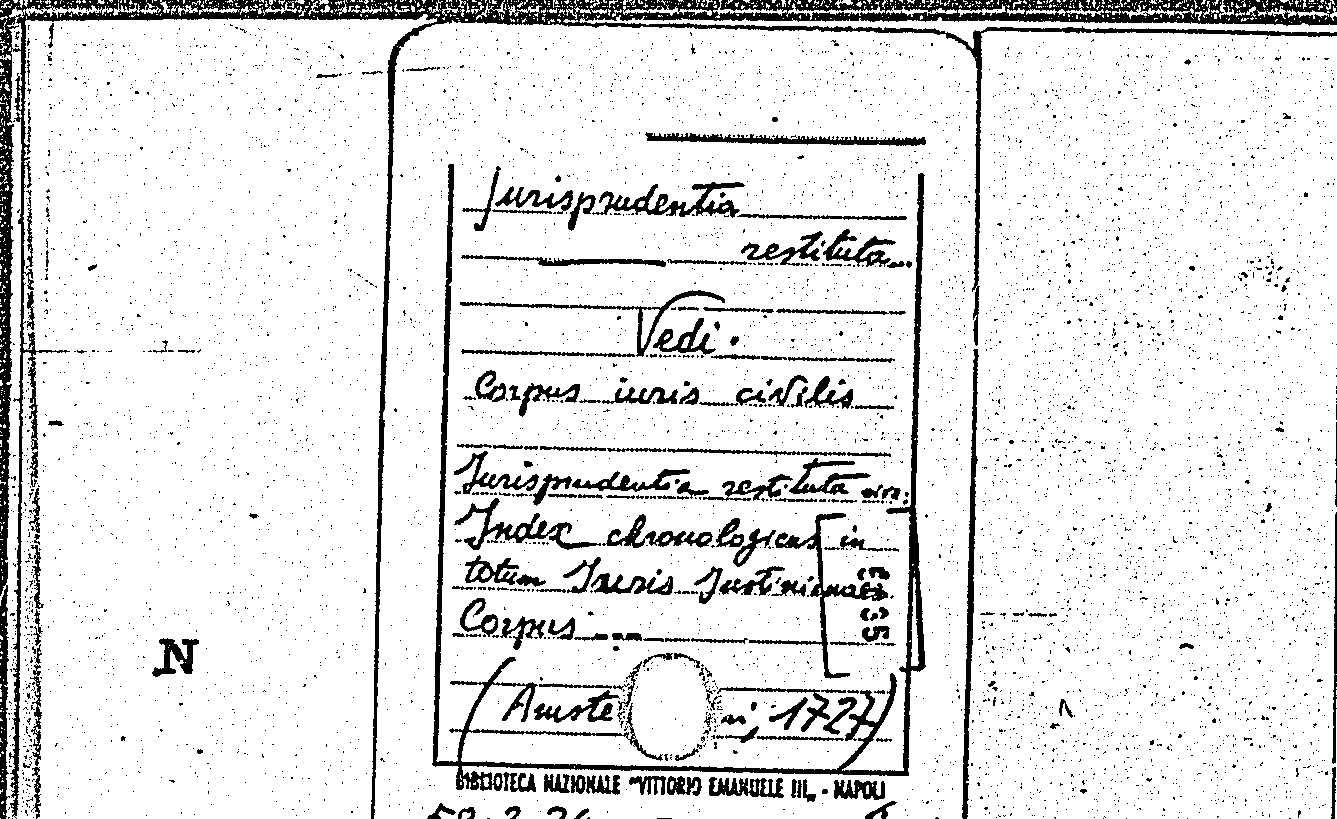 Jurisprudentia
restituta...
Vedi.
Corpus iuris civilis
Jurisprudentia restituta sive:
Index chronologicus in
totum Juris Justinianaei
Corpus ---
(Amste ni, 1727)
BIBLIOTECA NAZIONALE "VITTORIO EMANUELE III„ - NAPOLI
N